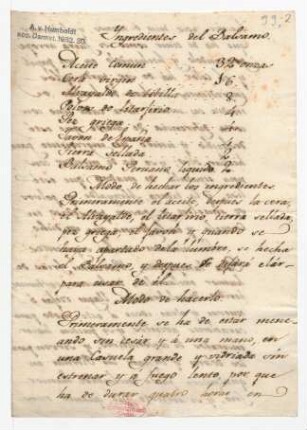 A. v. Humboldt
acc. Darmst. 1932. 20.
99.2
Ingredientes del Balsamo.
Aceite Comun 32 onzas
Cera virgen 16
Alvayalde de
Polvos de litarjirio 4
Pez griega
Javon de
Tierra sellada
Balsamo Peruano liquido 2
Modo de hechar los ingredientes
Primeramente el aceite, despues la cera,
el Alvayalde, el litarjirio, tierra sellada,
pez griega, el javon y quando se
haya apartado de la lumbre, se hecha
el Balsamo, y despues
para usar de él.
Modo de hacerlo.
Primeramente se ha de estar mene-
ando sin cesár y á una mano, en
una Casuela grande y vidriada sin
estrenar y a fuego lento, por que
ha de durar quatro horas en